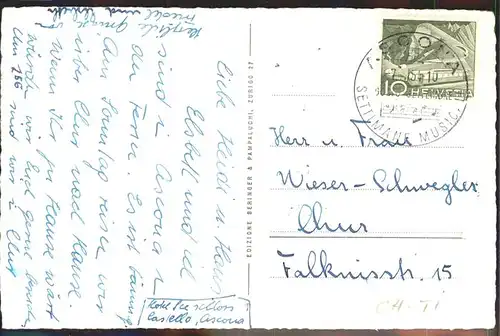 Liebe Heidi u. Hans
Elsbeth und ich
sind in Ascona in
den Ferien. Es ist
Am Sonntag reisen wir
über Chur nach Hause.
Wenn Ihr zu Hause wärt
würden wir Euch gerne
Um 266 sind wir in Chur
Herzliche Grüsse
und
Hotel Seeschloss
Castello, Ascona
EDIZIONE BERINGER & PAMPALUCHI, ZURIGO 27
ASCONA
SETTIMANE MUSICALI
10 HELVETIA
Herr u. Frau
Wieser-Schwegler
Chur
Falknisstr. 15
CH-TI